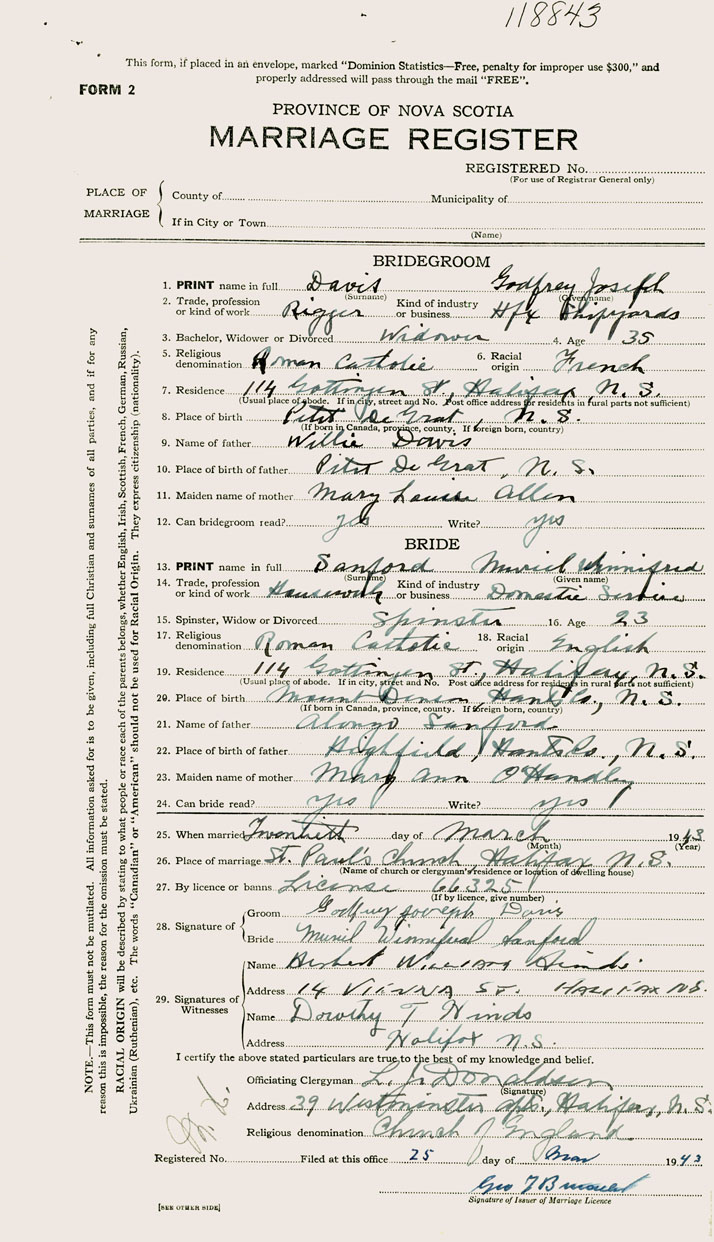 118843
This form, if placed in an envelope, marked "Dominion Statistics—Free, penalty for improper use $300," and
properly addressed will pass through the mail "FREE".
FORM 2
PROVINCE OF NOVA SCOTIA
MARRIAGE REGISTER
REGISTERED No.
(For use of Registrar General only)
PLACE OF MARRIAGE
County of Municipality of
If in City or Town
(Name)
BRIDEGROOM
1. PRINT name in full Davis Godfrey Joseph
(Surname) (Given name)
2. Trade, profession or kind of work Rigger Kind of industry or business Hfx Shipyards
3. Bachelor, Widower or Divorced Widower 4. Age 35
5. Religious denomination Roman Catholic 6. Racial origin French
7. Residence 114 Gottingen St, Halifax, N.S.
(Usual place of abode. If in city, street and No. Post office address for residents in rural parts not sufficient)
8. Place of birth Petit De Grat, N.S.
(If born in Canada, province, county. If foreign born, country)
9. Name of father Willie Davis
10. Place of birth of father Petit De Grat, N.S.
11. Maiden name of mother Mary Louise Allen
12. Can bridegroom read? yes Write? yes
BRIDE
13. PRINT name in full Sanford Muriel Winnifred
(Surname) (Given name)
14. Trade, profession or kind of work Housework Kind of industry or business Domestic Service
15. Spinster, Widow or Divorced Spinster 16. Age 23
17. Religious denomination Roman Catholic 18. Racial origin English
19. Residence 114 Gottingen St., Halifax, N.S.
(Usual place of abode. If in city, street and No. Post office address for residents in rural parts not sufficient)
20. Place of birth Mount Denson, Hants Co., N.S.
(If born in Canada, province, county. If foreign born, country)
21. Name of father Alonzo Sanford
22. Place of birth of father Highfield, Hants Co., N.S.
23. Maiden name of mother Mary Ann O'Handley
24. Can bride read? yes Write? yes
25. When married Twentieth day of March 1943
(Month) (Year)
26. Place of marriage St. Paul's Church Halifax N.S.
(Name of church or clergyman's residence or location of dwelling house)
27. By licence or banns License 66325
(If by licence, give number)
28. Signature of
Groom Godfrey Joseph Davis
Bride Muriel Winnifred Sanford
29. Signatures of Witnesses
Name Herbert William Hinds
Address 14 Vienna St. Halifax NS.
Name Dorothy T Hinds
Address Halifax N.S.
I certify the above stated particulars are true to the best of my knowledge and belief.
Officiating Clergyman L. J. Donaldson
(Signature)
Address 39 Westminster apts., Halifax, N.S.
Religious denomination Church of England
Registered No. Filed at this office 25 day of Mar 1943
Geo
Signature of Issuer of Marriage Licence
[SEE OTHER SIDE]
NOTE.—This form must not be mutilated. All information asked for is to be given, including full Christian and surnames of all parties, and if for any
reason this is impossible, the reason for the omission must be stated.
RACIAL ORIGIN will be described by stating to what people or race each of the parents belongs, whether English, Irish, Scottish, French, German, Russian,
Ukrainian (Ruthenian), etc. The words "Canadian" or "American" should not be used for Racial Origin. They express citizenship (nationality).